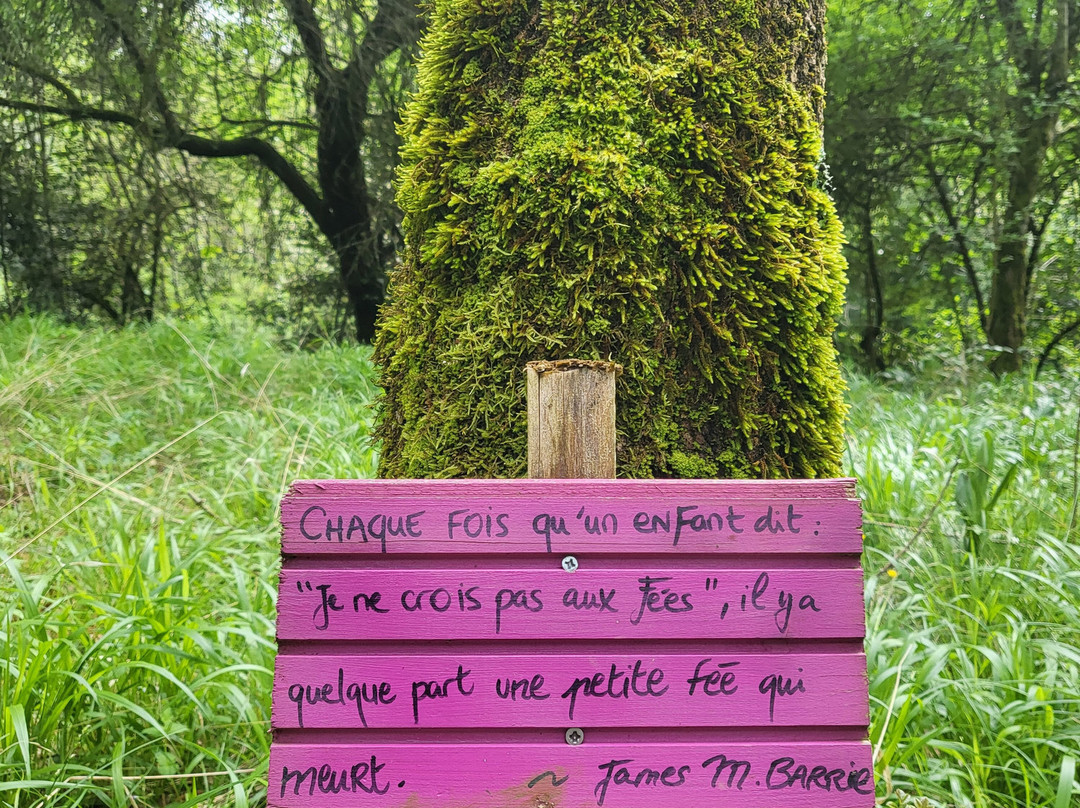 CHAQUE FOIS qu'un enfant dit :
"Je ne crois pas aux fées", il y a
quelque part une petite fée qui
meurt. ~ James M. BARRIE